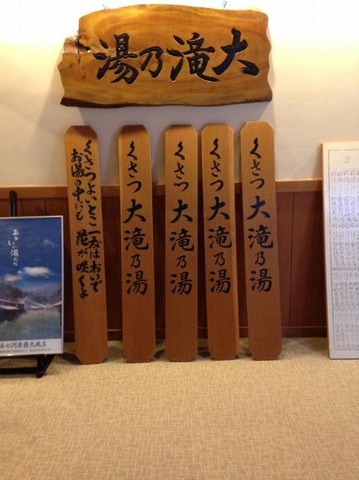 大滝乃湯
くさつよいとこ一度はおいで
お湯の中にも花が咲くよ
くさつ 大滝乃湯
くさつ 大滝乃湯
くさつ 大滝乃湯
くさつ 大滝乃湯